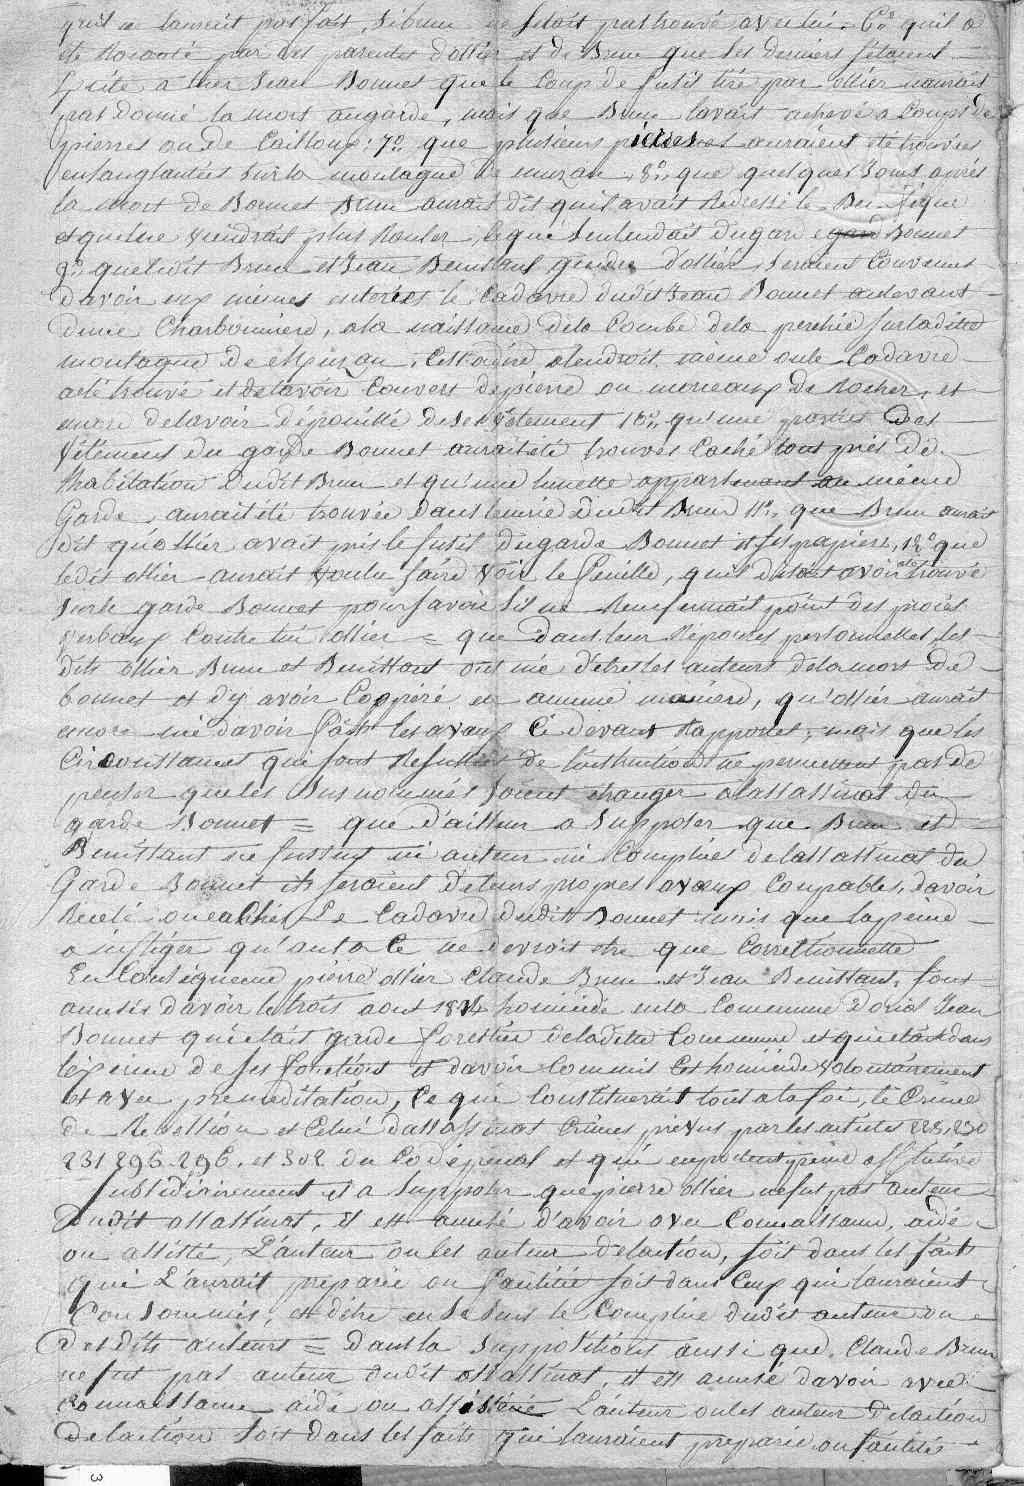 qu'il ne lauroit pas fait, si brun ne setoit pas trouvé avec lui. 6° qu'il a
été raconté par des parents dollier et de Brun que les derniers setaient
chez Jean Bonnet que le coup de fusil tiré par ollier naurait
pas donné la mort augarde, mais que Brun lavait achevé a coups de
pierres ou de cailloux: 7° que plusieurs pierres auraient été trouvées
ensanglantées sur la montagne de muzan, 8° que quelques jours après
la mort de Bonnet Brun aurait dit quil avait redressé le Bec figue
et quil ne viendrait plus rouler, ce qui sentendait du garde Bonnet
9° que ledit Brun et Jean Benistant gendre dollier seraient convenus
davoir eux mêmes enterrés le cadavre dudit Jean Bonnet audevant
dune charbonniere, ala naissance dela Combe dela perchie sur ladite
montagne de Muzan, cest adire alendroit même oule cadavre
aété trouvé et delavoir couvert depierre ou morceaux de rocher, et
encore delavoir dépouillé deses vêtement 10° qu'une parties des
vêtemens du garde Bonnet aurait été trouvés caché tout près de
lhabitation dudit Brun et qu'une lunette appartenant au même
Garde, aurait été trouvée dans lecurie dudit Brun 11° que Brun aurait
dit quollier avait pris le fusil dugarde Bonnet et ses papiers, 12° que
ledit ollier aurait voulu faire voir le feuille, quil disait avoir été trouvé
sur le garde Bonnet pour savoir sil ne renfermait point des procès
verbaux contre lui ollier = que dans leur réponses personnelles les
dits ollier Brun et Benistant ont nié d'etre les auteurs dela mort de
bonnet et dy avoir coopéré en aucune manière, qu'ollier aurait
encore nié davoir fait les aveux ci devant rapportés, mais que les
circonstances qui sont resultées de linstruction ne permettent pas de
penser que les susnommés soient etranger alassassinat du
garde Bonnet = que d'ailleur a supposer que Brun et
Benistant ne fussent ni auteur ni complices delassassinat du
Garde Bonnet ils seraient deleurs propres aveux coupables, davoir
recelé ou caché Le cadavre dudit Bonnet mais que la peine
a infliger qu'anta ce ne devroit etre que correctionnelle
En consequence pierre ollier Claude Brun et Jean Benistant, sont
accusés davoir le trois aout 1824 homicidé en la commune Jean
Bonnet qui était garde forestier deladite commune et qui etait dans
lexercice de ses fonctions et davoir commis cet homicide volontairement
et avec preméditation, ce qui constituerait tout ala foi, le Crime
de Rebellion et celui dassassinat crimes prevus par les articles 228, 230
231 295. 296. et 302 du code pénal et qui emportent peine afflictive
subsidiairement et a supposer que pierre ollier ne fut pas auteur
dudit assassinat, il est accusé d'avoir avec connaissance, aidé
ou assisté, L'auteur ou les auteur delaction, soit dans les faits
qui L'aurait préparée ou facilitée soit dans ceux qui lauraient
Consommée, et dêtre en ce sens le complice dudit auteur ou
desdits auteurs = dans la supposition aussi que, Claude Brun
ne fut pas auteur dudit assassinat, il est accusé davoir avec
connaissance aidé ou assisté L'auteur oules auteur delaction
delaction soit dans les faits qui lauraient preparée ou facilité